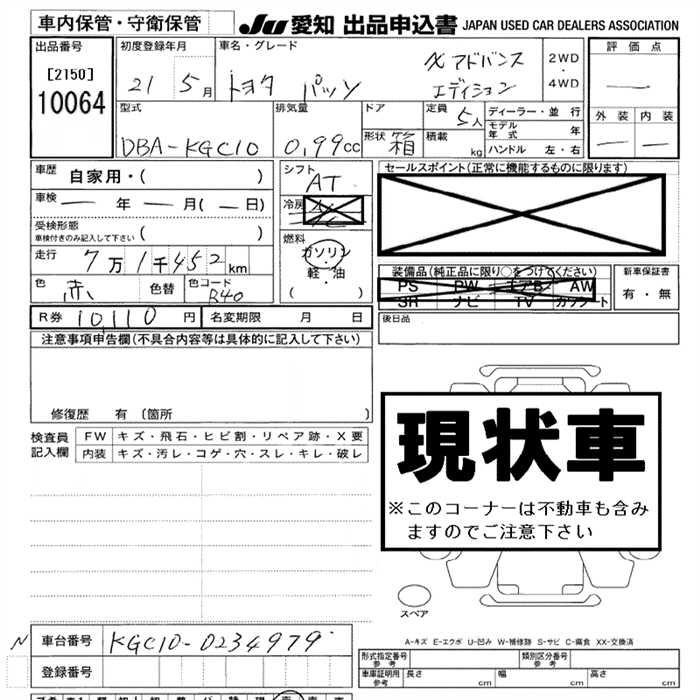 車内保管・守衛保管
JU 愛知 出品申込書 JAPAN USED CAR DEALERS ASSOCIATION
出品番号 [2150] 10064
初度登録年月 21 5月
車名・グレード トヨタ パッソ X アドバンス エディション
2WD・4WD
評価点 —
外装 — 内装 —
型式 DBA-KGC10
排気量 0,99cc
ドア
形状 箱
定員 5人
積載 kg
ディーラー・並行
モデル年式 年
ハンドル 左・右
車歴 自家用・( )
車検 — 年 — 月(— 日)
受検形態
車検付きのみ記入して下さい ( )
走行 7万1千452km
色 赤 色替 色コード R40
シフト AT
冷房
燃料 ガソリン・軽・油
( )
セールスポイント(正常に機能するものに限ります)
装備品(純正品に限り○をつけてください)
PS PW エアB AW
SR ナビ TV カワシート
新車保証書 有・無
R券 10,110円 名変期限 月 日
後日品
注意事項申告欄(不具合内容等は具体的に記入して下さい)
修復歴 有 [箇所 ]
検査員記入欄
FW キズ・飛石・ヒビ割・リペア跡・X要
内装 キズ・汚レ・コゲ・穴・スレ・キレ・破レ
現状車
※このコーナーは不動車も含み
ますのでご注意下さい
スペア
A-キズ E-エクボ U-凹み W-補修跡 S-サビ C-腐食 XX-交換済
N 車台番号 KGC10-0234979
登録番号
形式指定番号 参考
類別区分番号 参考
車庫証明用 参考 長さ cm 幅 cm 高さ cm